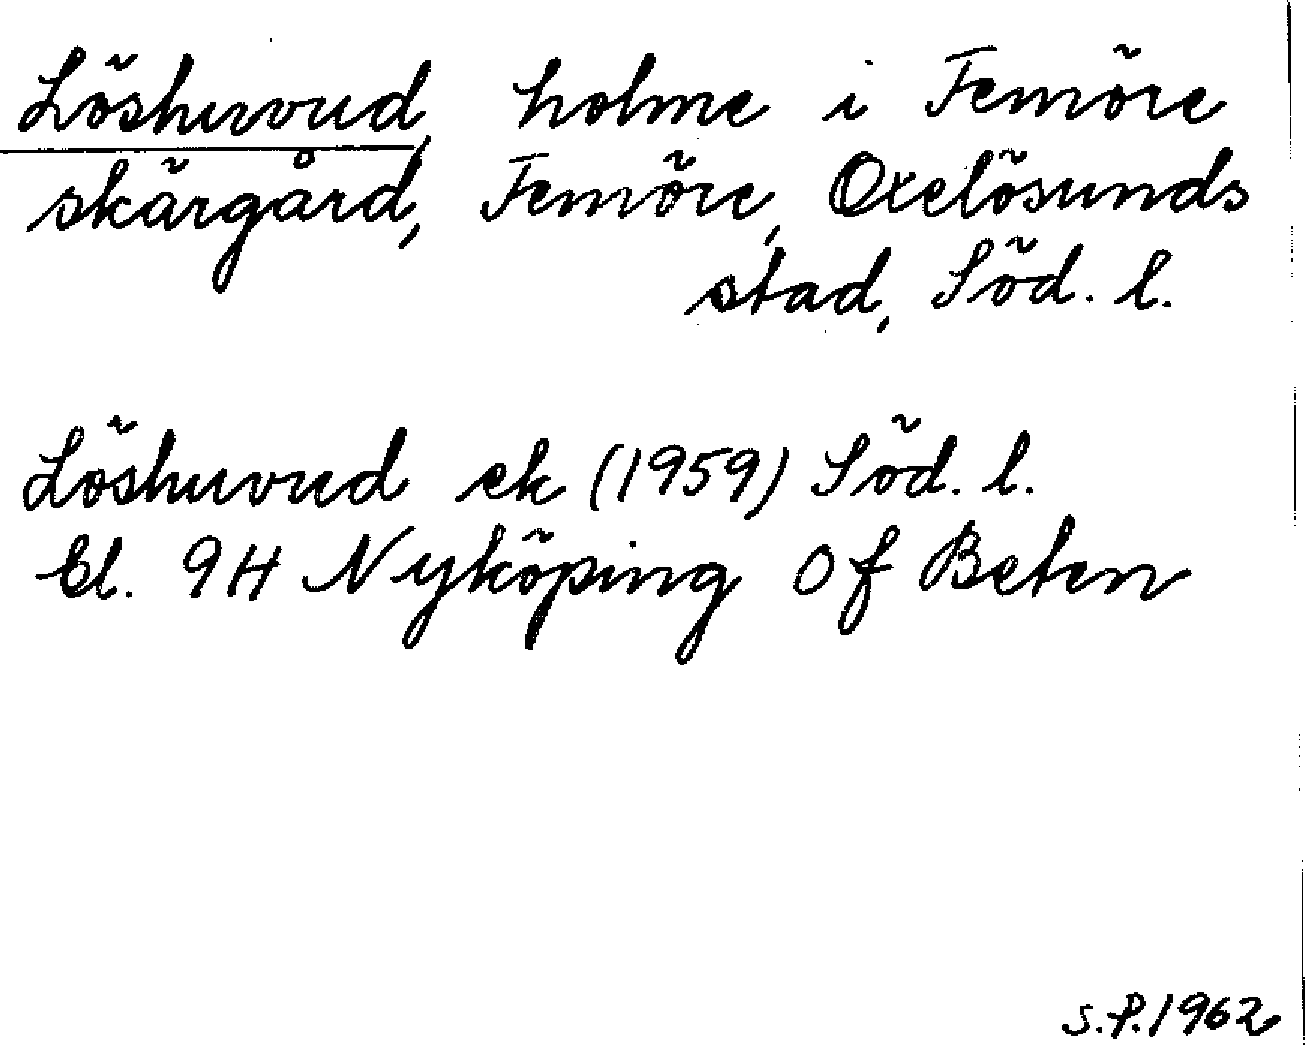 Löshuvud, holme i Femöre
skärgård, Femöre, Oxelösunds
stad, Söd. l.
Löshuvud ek (1959) Söd. l.
bl. 9H Nyköping Of Beten
S.P. 1962